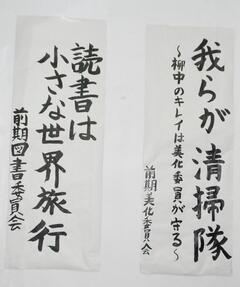 我らが清掃隊
～柳中のキレイは美化委員が守る～
前期美化委員会
読書は
小さな世界旅行
前期図書委員会